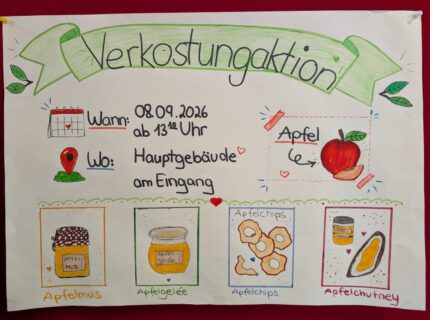 Verkostungaktion
Wann: 08.09.2026
ab 13 Uhr
Wo: Hauptgebäude
am Eingang
Apfel
APFEL MUS
Apfel gelee
Apfelchips
Apfelmus
Apfelgelée
Apfelchips
Apfelchutney